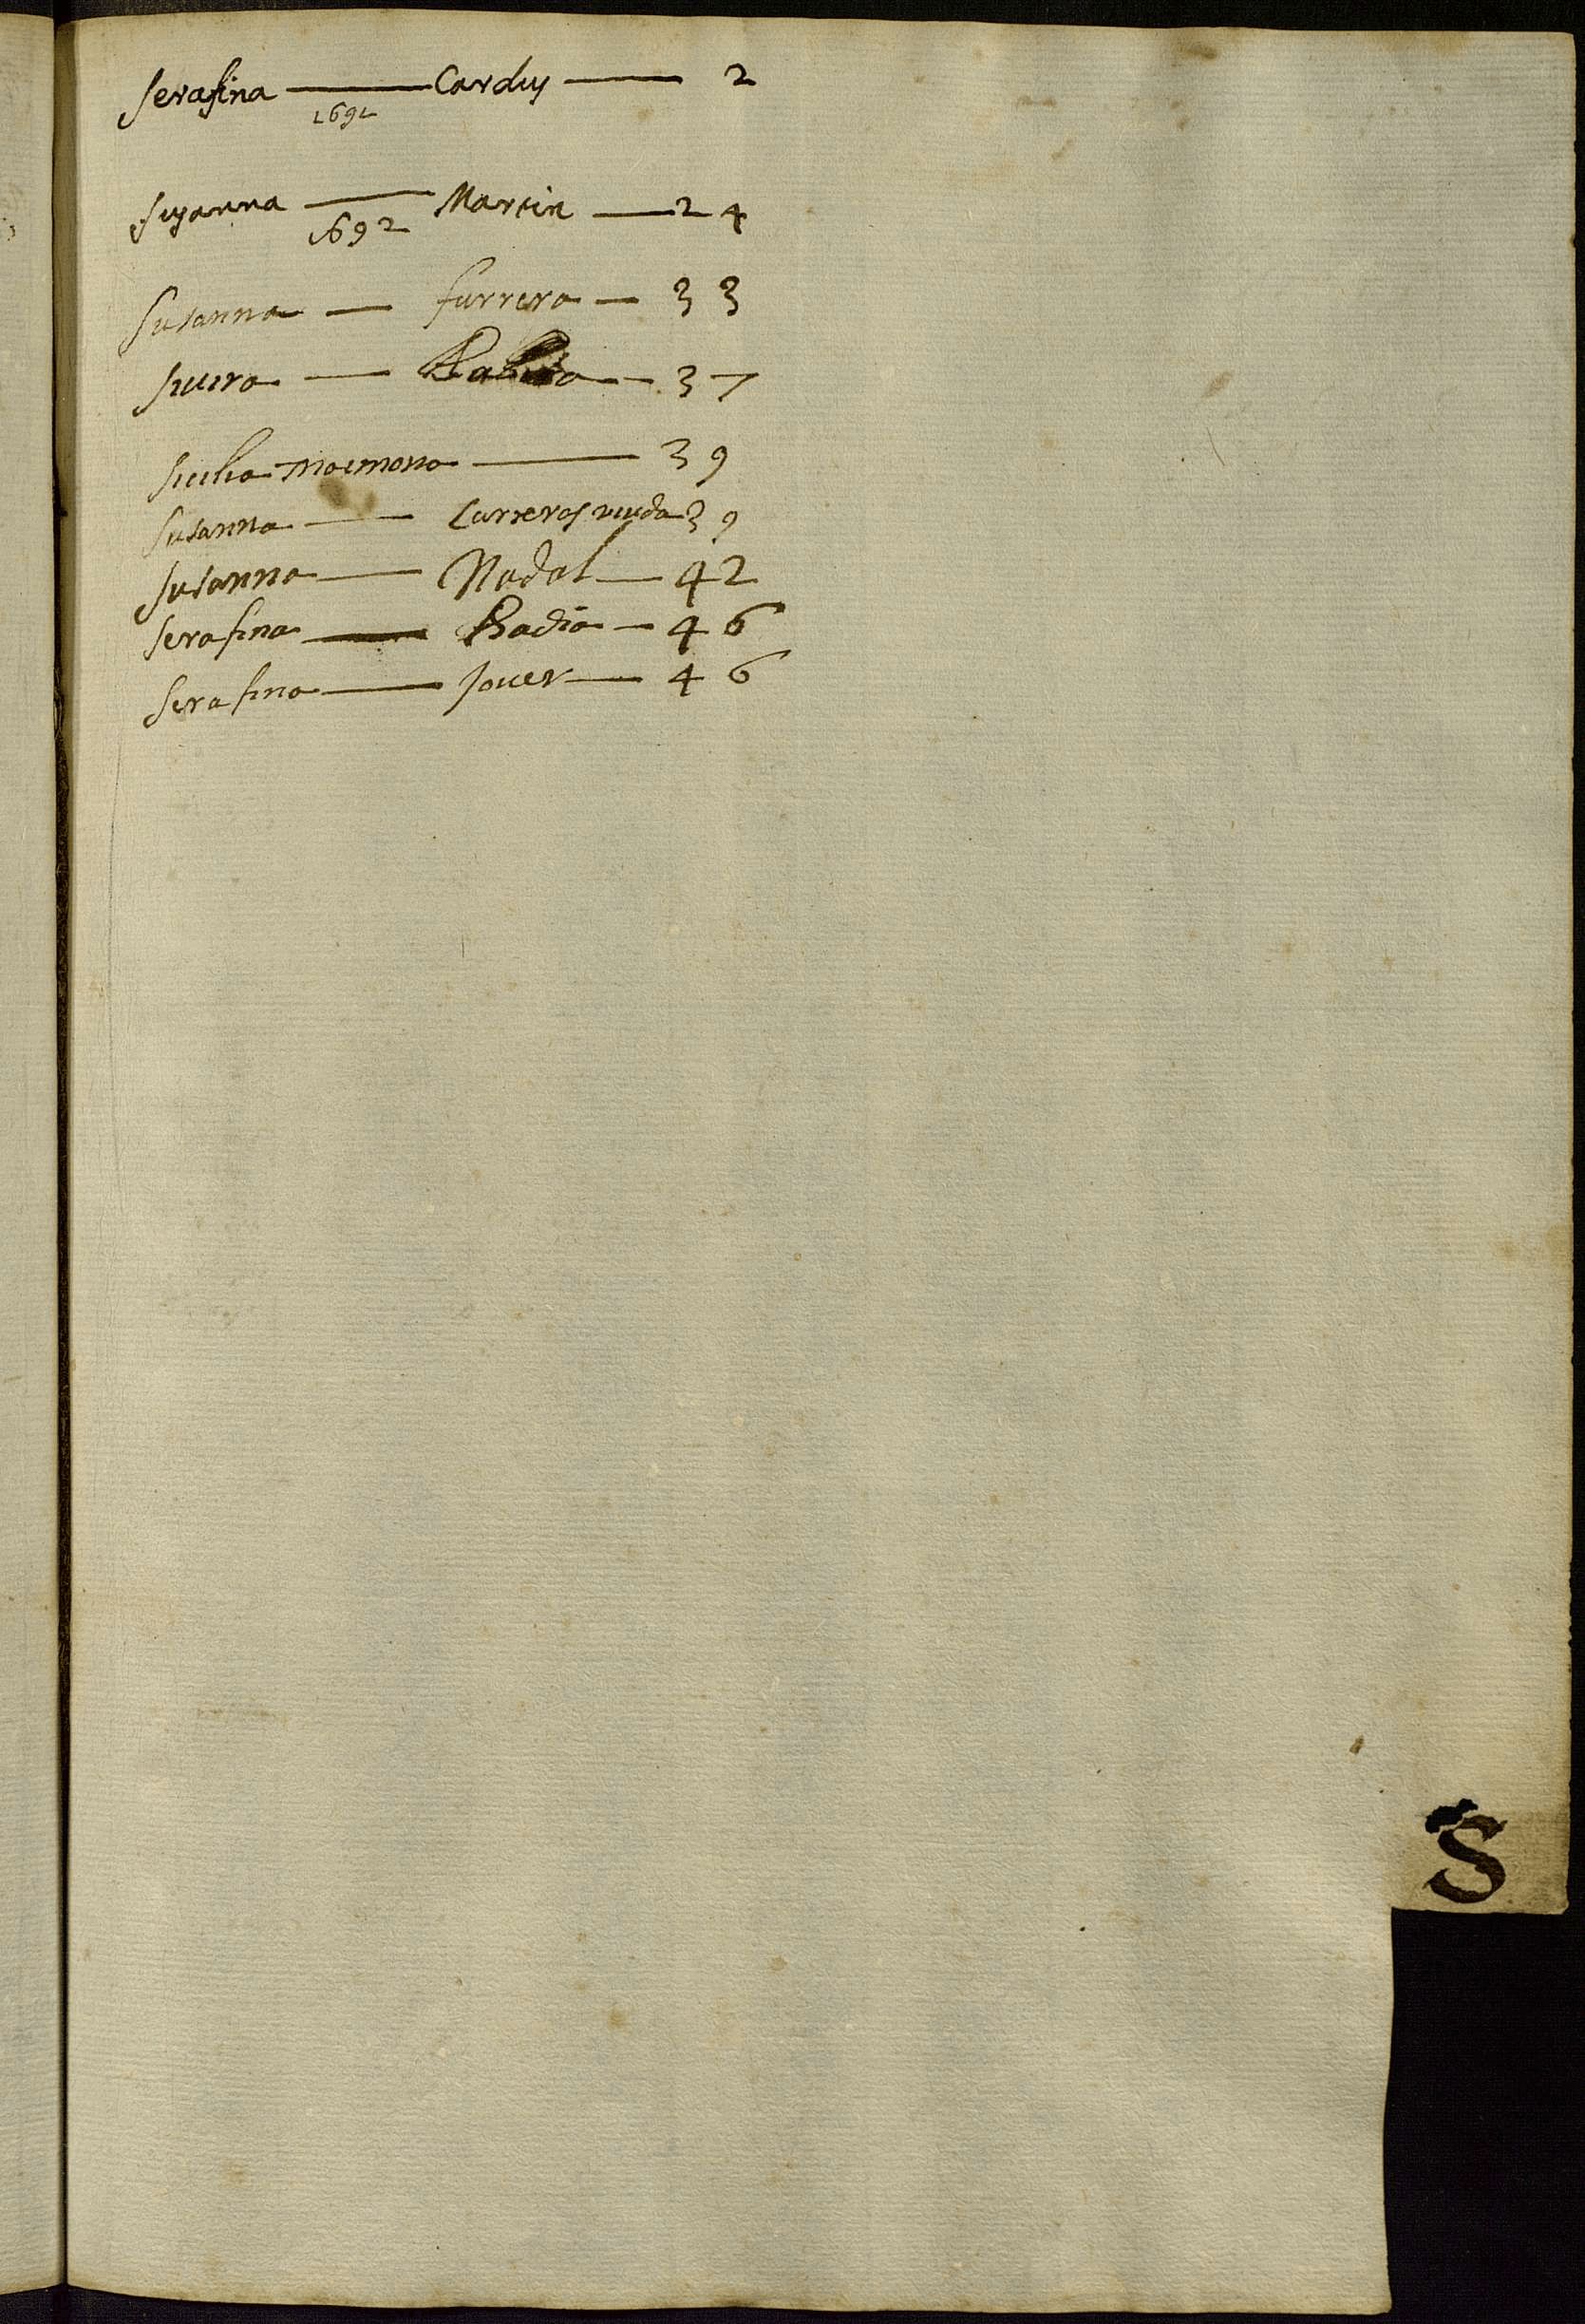 Serafina — Cardus — 2
1691
Susanna — Martin — 24
1692
Susanna — farrera — 33
— 37
Sicilia — 39
Susanna — Carreras viuda 39
Susanna — Nadal — 42
Serafina — Badia — 46
Serafina — Jover — 46
S